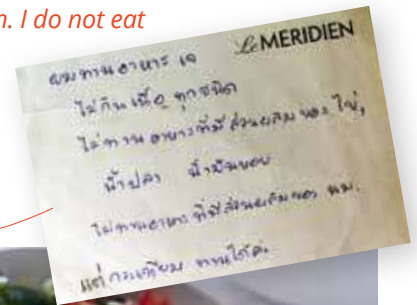 n. I do not eat
Le MERIDIEN
ผมทานอาหาร เจ
ไม่กินเนื้อ ทุกชนิด
ไม่ทานอาหารที่มีส่วนผสม ของ ไข่,
น้ำปลา น้ำมันหอย
ไม่ทานอาหารที่มีส่วนผสมของ นม.
แต่ กระเทียม ทานได้ค่ะ.